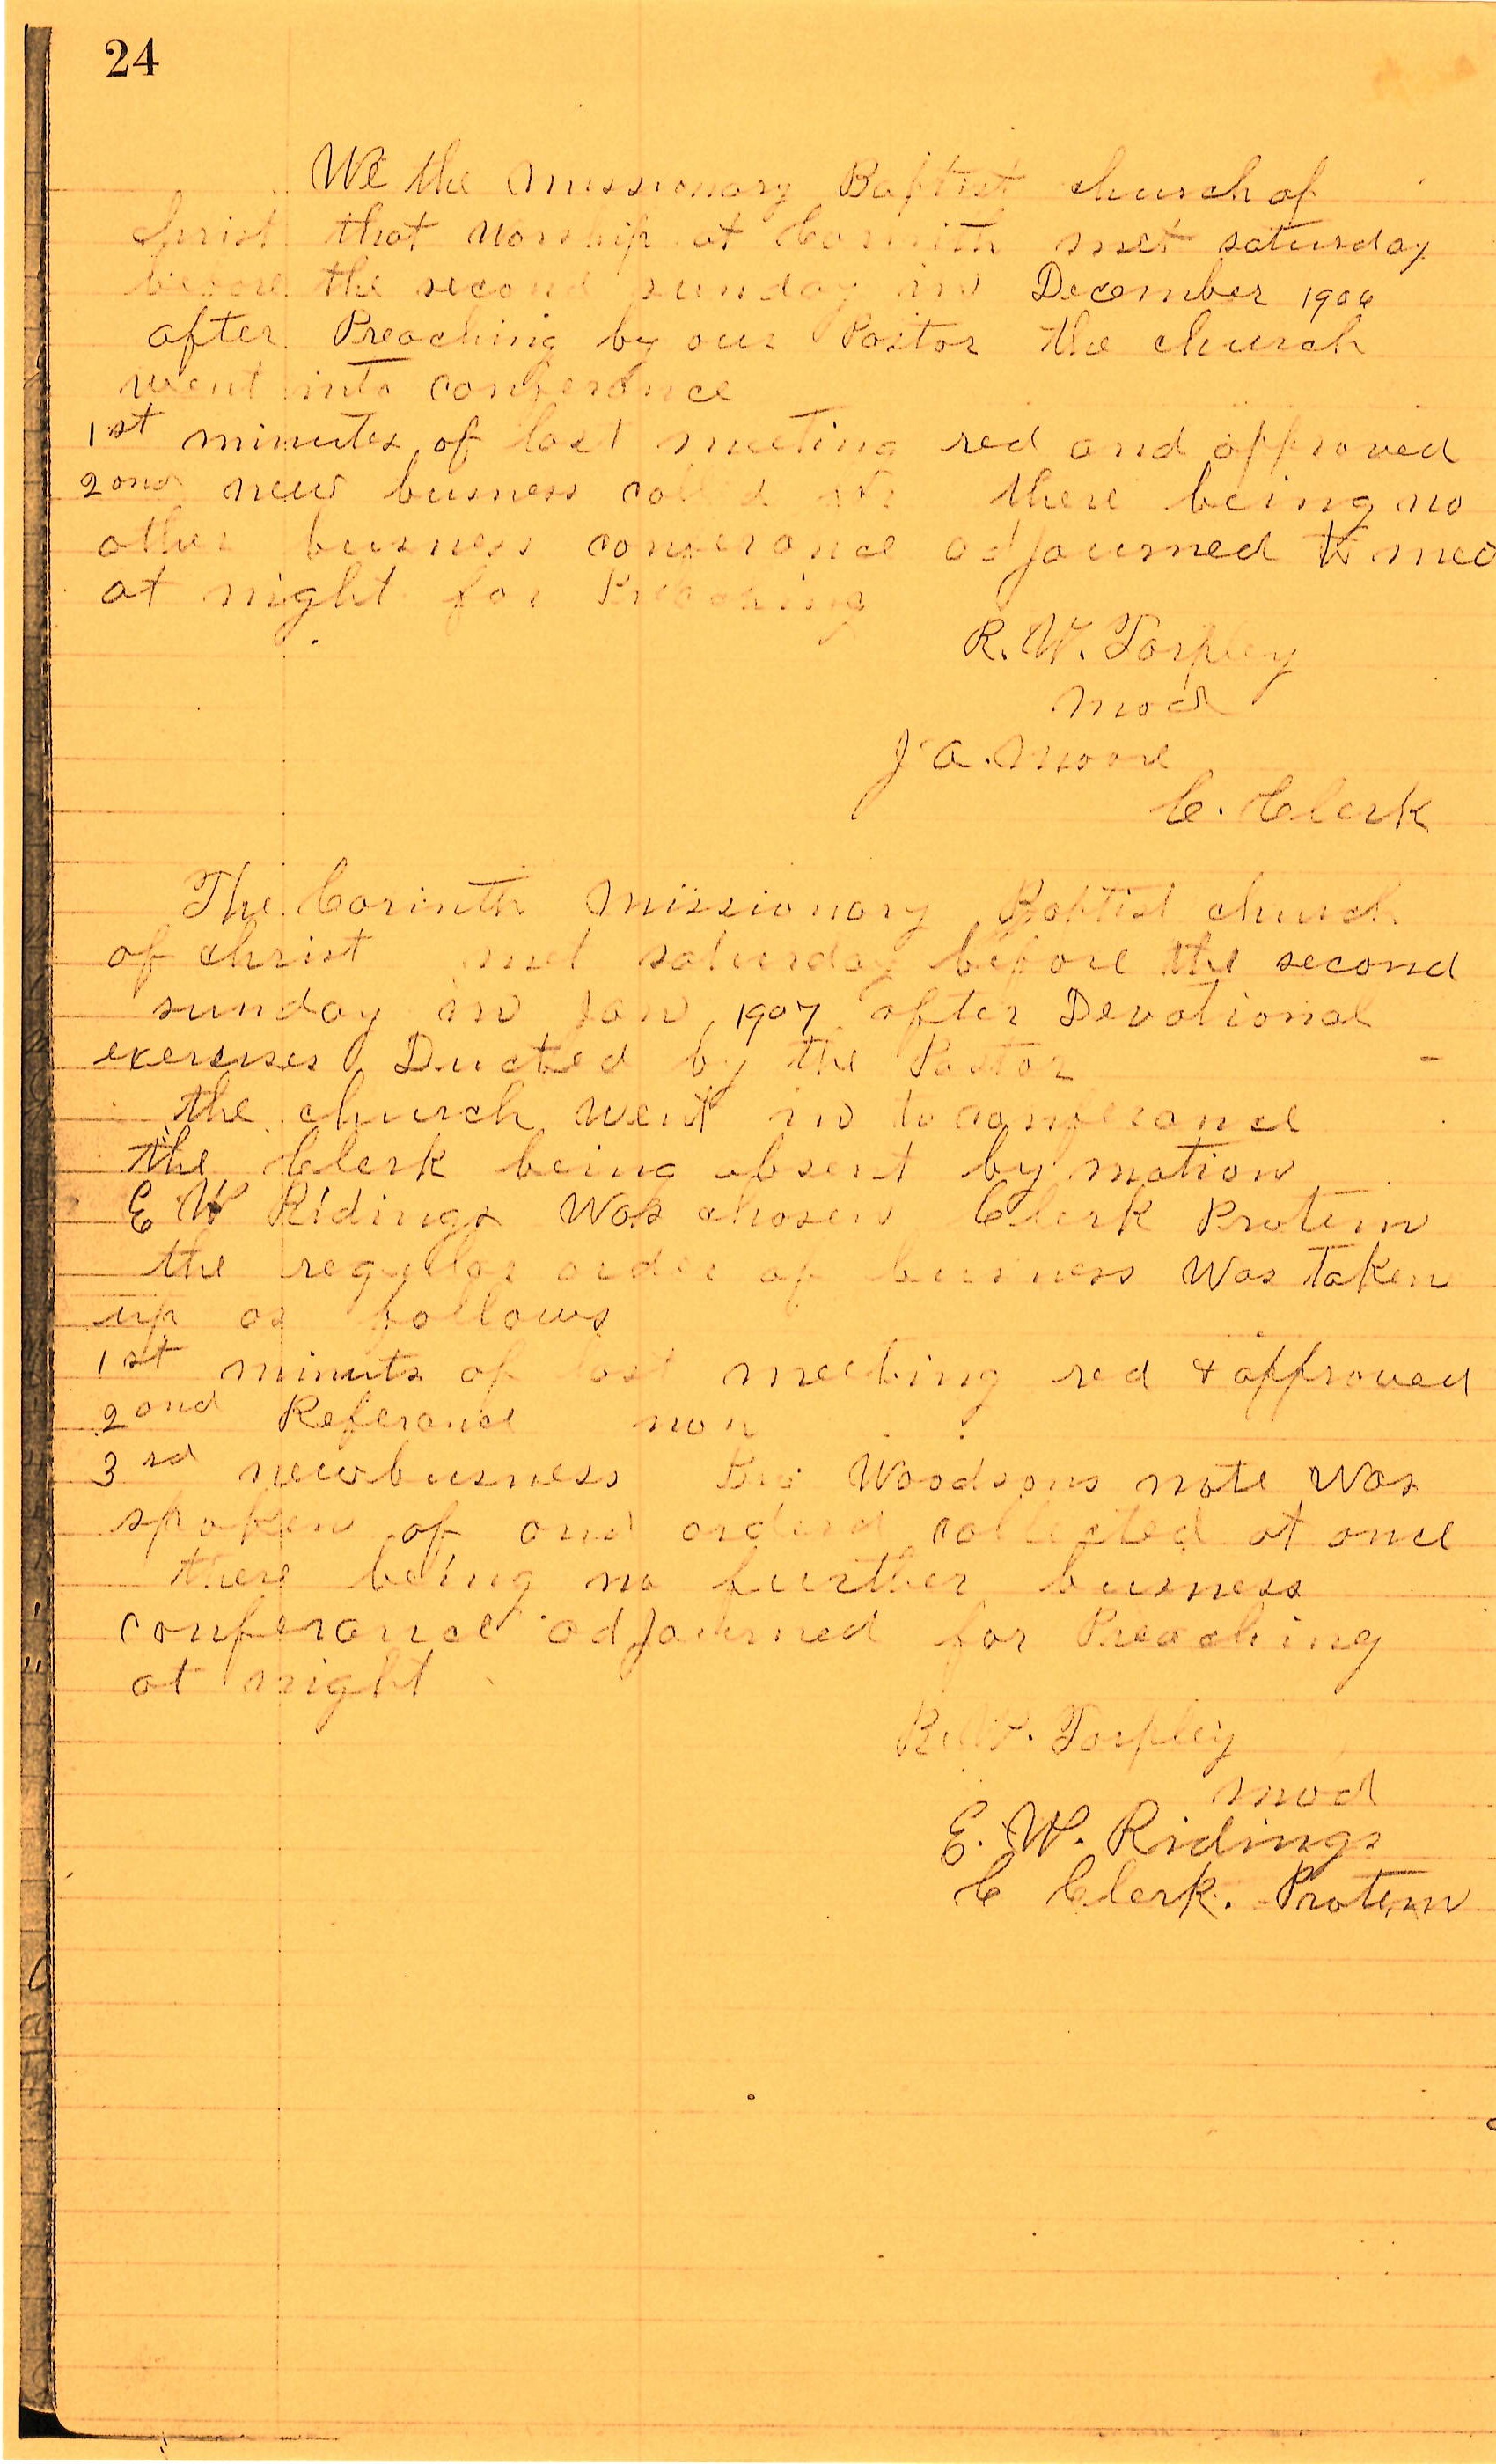 24
We the Missionary Baptist church of
christ that Worship at Corinth met saturday
before the second sunday in December 1906
after Preaching by our Pastor the church
went into conferance
1st minutes of last meeting red and approved
2ond new busness called for there being no
other busness conferance adjourned to mee
at night for Preaching
R. W. Tarpley
Mod
J. A. Moore
C. Clerk
The Corinth Missionary Baptist church
of christ met saturday before the second
sunday in Jan, 1907 after Devotional
exersises Ducted by the Pastor
the church went in to conferance
the Clerk being absent by motion
E W Ridings Was chosen Clerk Protem
the regular order of busness Was Taken
up as follows
1st minuts of last meeting red & approved
2ond Referance non
3rd new busness Bro Woodsons note Was
spoken of and orderd collected at once
there being no further busness
conferance adjourned for Preaching
at night
R. W. Tarpley
mod
E. W. Ridings
C Clerk. Protem